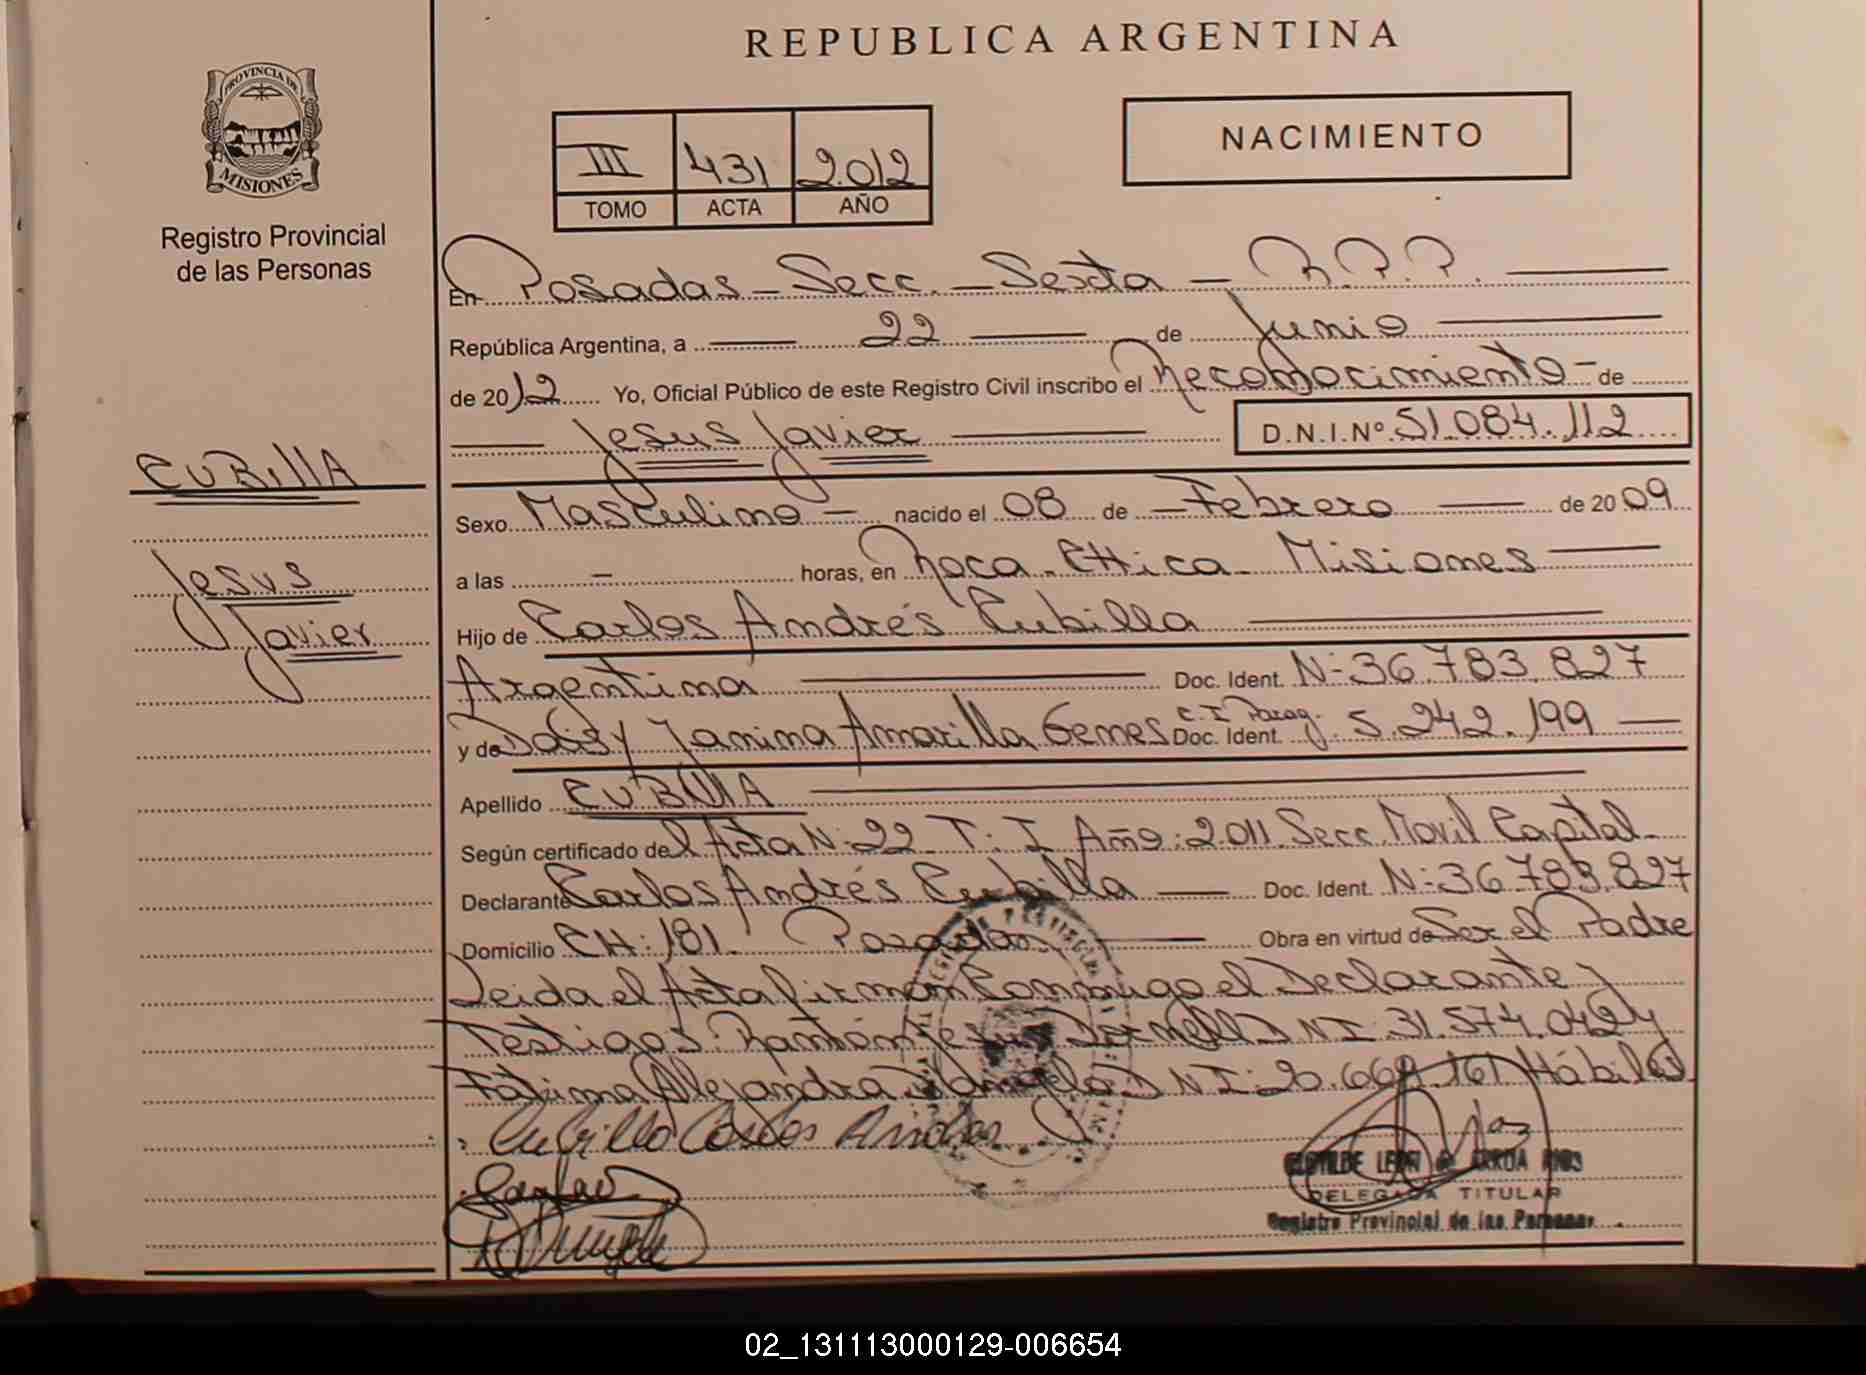 REPUBLICA ARGENTINA
PROVINCIA DE
MISIONES
Registro Provincial
de las Personas
III 431 2.012
TOMO ACTA AÑO
NACIMIENTO
En Posadas - Secc. - Sexta - R.P.P.
República Argentina, a 22 de Junio
de 2012 Yo, Oficial Público de este Registro Civil inscribo el Reconocimiento - de
Jesus Javier D.N.I.Nº 51.084.112
CUBIllA
Sexo Masculino - nacido el 08 de - Febrero de 2009
Jesus
a las - horas, en Roca. CHica - Misiones
Javier
Hijo de Carlos Andrés Cubilla
Argentina Doc. Ident. N: 36.783.827
y de Janina Amarilla Genes C.I Parag. Doc. Ident. 5.242.199
Apellido CUBIllA
Según certificado del Acta N: 22 T: I Año: 2.011. Secc. Movil Capital -
Declarante Carlos Andrés Cubilla Doc. Ident. N: 36.783.827
Domicilio CH: 181. Posadas Obra en virtud de Ser el Padre
Leida el Acta firman Conmigo el Declarante y
Testigos: Ramón D N I: 31.574.042 y
Fátima Alejandra D N I: 20. Hábiles
Cubilla Carlos Andres
DELEGADA TITULAR
Registro Provincial de las Personas
02_131113000129-006654